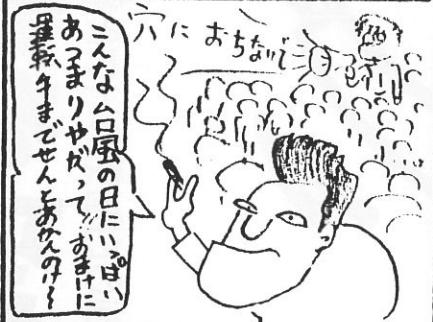 穴に おちないで
こんな台風の日にいっぱい
あつまりやがって!!おまけに
運転手までせんとあかんのけ〜